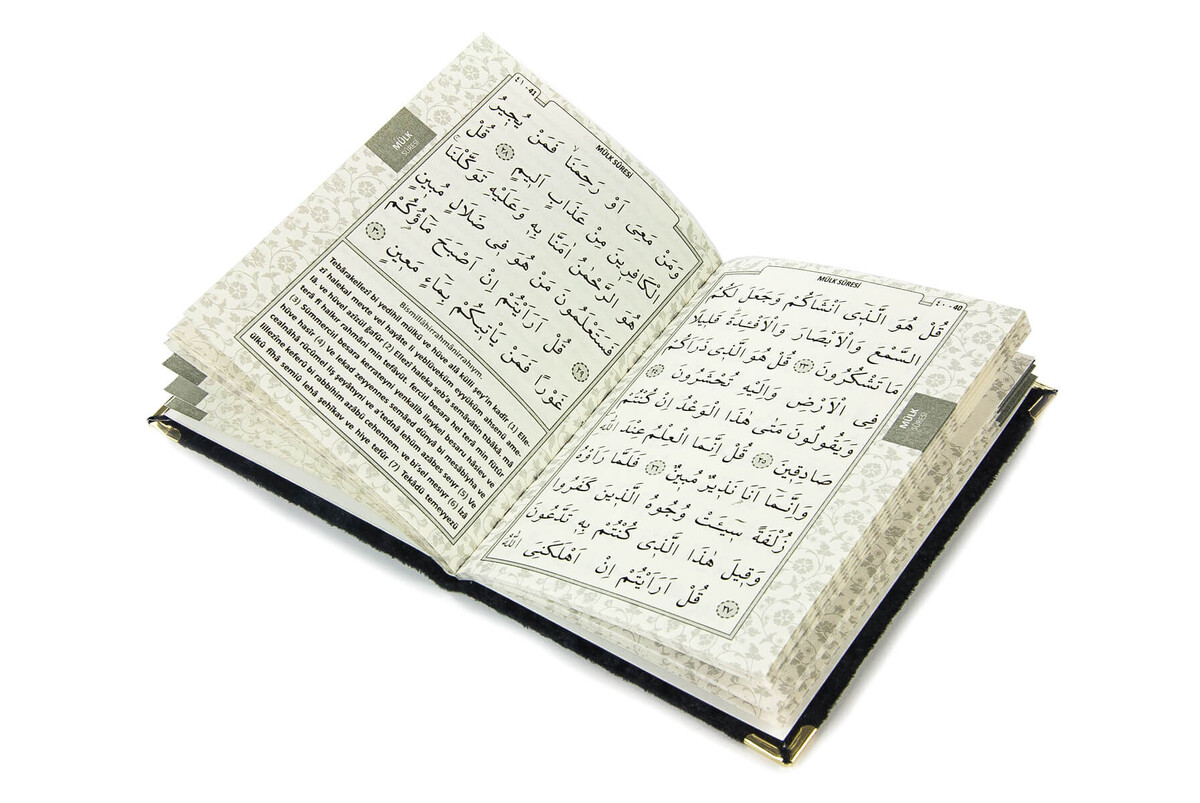 MÜLK SÛRESİ
٤٠ - 40
قُلْ هُوَ الَّذٖٓي اَنْشَاَكُمْ وَجَعَلَ لَكُمُ
السَّمْعَ وَالْاَبْصَارَ وَالْاَفْـِٔدَةَ قَلٖيلًا
مَا تَشْكُرُونَ ٢٣ قُلْ هُوَ الَّذٖي ذَرَاَكُمْ
فِي الْاَرْضِ وَاِلَيْهِ تُحْشَرُونَ ٢٤
وَيَقُولُونَ مَتٰى هٰذَا الْوَعْدُ اِنْ كُنْتُمْ
صَادِقٖينَ ٢٥ قُلْ اِنَّمَا الْعِلْمُ عِنْدَ اللّٰهِ
وَاِنَّمَٓا اَنَا نَذٖيرٌ مُبٖينٌ ٢٦ فَلَمَّا رَاَوْهُ
زُلْفَةً سٖٓيـَٔتْ وُجُوهُ الَّذٖينَ كَفَرُوا
وَقٖيلَ هٰذَا الَّذٖي كُنْتُمْ بِهٖ تَدَّعُونَ
٢٧ قُلْ اَرَاَيْتُمْ اِنْ اَهْلَكَنِيَ اللّٰهُ
MÜLK
SÛRESİ
MÜLK SÛRESİ
٤١ - 41
وَمَنْ مَعِيَ اَوْ رَحِمَنَا فَمَنْ يُجٖيرُ
الْكَافِرٖينَ مِنْ عَذَابٍ اَلٖيمٍ ٢٨ قُلْ
هُوَ الرَّحْمٰنُ اٰمَنَّا بِهٖ وَعَلَيْهِ تَوَكَّلْنَا
فَسَتَعْلَمُونَ مَنْ هُوَ فٖي ضَلَالٍ مُبٖينٍ
٢٩ قُلْ اَرَاَيْتُمْ اِنْ اَصْبَحَ مَٓاؤُكُمْ
غَوْرًا فَمَنْ يَأْتٖيكُمْ بِمَٓاءٍ مَعٖينٍ ٣٠
MÜLK
SÛRESİ
Bismillâhirrahmânirrahıym.
Tebârakellezî bi yedihil mülkü ve hüve alâ külli şey'in kadîr. (1) Elle-
zî halekal mevte vel hayâte li yeblüveküm eyyüküm ahsenü ame-
lâ. ve hüvel azîzül ğafûr (2) Ellezî haleka seb'a semâvâtin tıbâkâ, mâ
terâ fî halkır rahmâni min tefâvüt. ferciıl besara hel terâ min fütûr
(3) Sümmerciıl besara kerrateyni yenkalib ileykel besaru hâsiev ve
hüve hasîr (4) Ve lekad zeyyennes semâed dünyâ bi mesâbîyha ve
cealnâhâ rücûmel liş şeyâtıyni ve a'tednâ lehüm azâbes seıyr (5) Ve
lillezîne keferû bi rabbihim azâbü cehennem. ve bi'sel mesıyr (6) İzâ
ülkû fîhâ semiû lehâ şehîkav ve hiye tefûr (7) Tekâdü temeyyezü